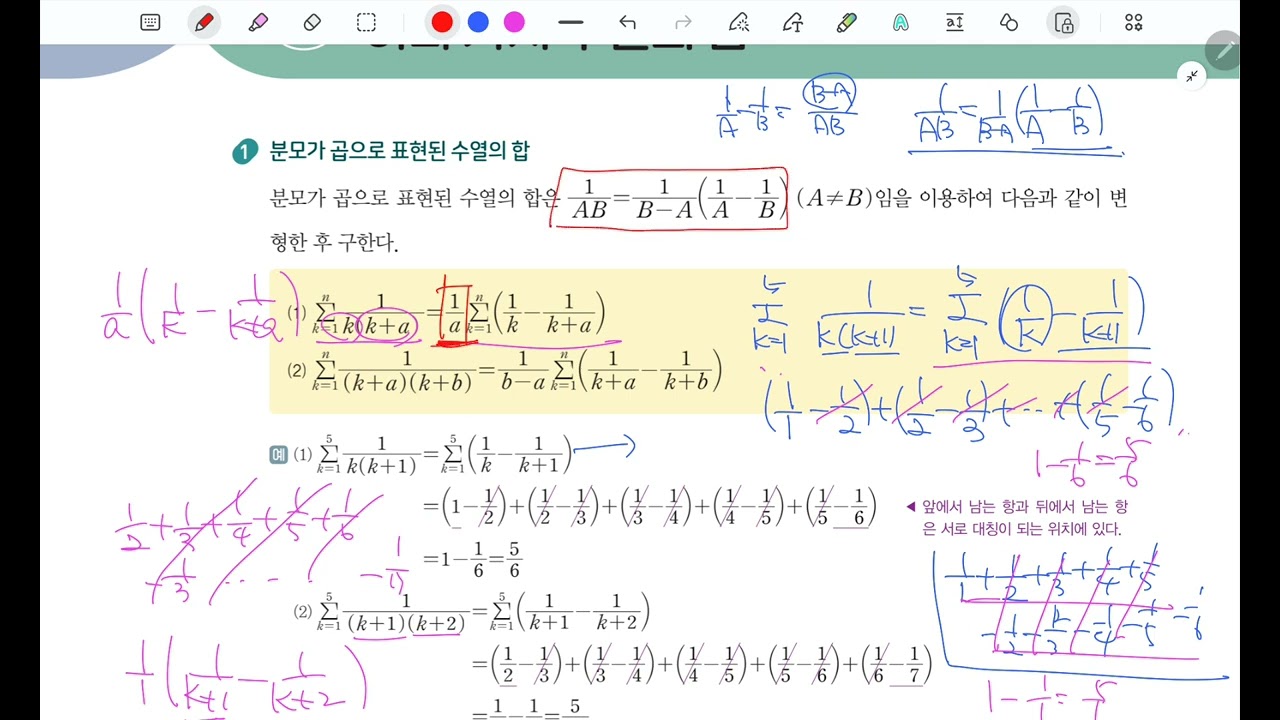 1/A - 1/B = (B-A)/AB
1/AB = 1/(B-A) (1/A - 1/B)
1 분모가 곱으로 표현된 수열의 합
분모가 곱으로 표현된 수열의 합은 1/AB = 1/(B-A) (1/A - 1/B) (A≠B)임을 이용하여 다음과 같이 변
형한 후 구한다.
1/a (1/k - 1/(k+a))
(1) ∑_{k=1}^{n} 1/(k(k+a)) = 1/a ∑_{k=1}^{n} (1/k - 1/(k+a))
(2) ∑_{k=1}^{n} 1/((k+a)(k+b)) = 1/(b-a) ∑_{k=1}^{n} (1/(k+a) - 1/(k+b))
∑_{k=1}^{5} 1/(k(k+1)) = ∑_{k=1}^{5} (1/k - 1/(k+1))
(1/1 - 1/2) + (1/2 - 1/3) + ... + (1/5 - 1/6)
1 - 1/6 = 5/6
예 (1) ∑_{k=1}^{5} 1/(k(k+1)) = ∑_{k=1}^{5} (1/k - 1/(k+1))
= (1 - 1/2) + (1/2 - 1/3) + (1/3 - 1/4) + (1/4 - 1/5) + (1/5 - 1/6)
= 1 - 1/6 = 5/6
◀ 앞에서 남는 항과 뒤에서 남는 항
은 서로 대칭이 되는 위치에 있다.
1/2 + 1/3 + 1/4 + 1/5 + 1/6
- 1/3 ...
1/1 + 1/2 + 1/3 + 1/4 + 1/5
- 1/2 - 1/3 - 1/4 - 1/5 - 1/6
(2) ∑_{k=1}^{5} 1/((k+1)(k+2)) = ∑_{k=1}^{5} (1/(k+1) - 1/(k+2))
= (1/2 - 1/3) + (1/3 - 1/4) + (1/4 - 1/5) + (1/5 - 1/6) + (1/6 - 1/7)
1/1 (1/(k+1) - 1/(k+2))